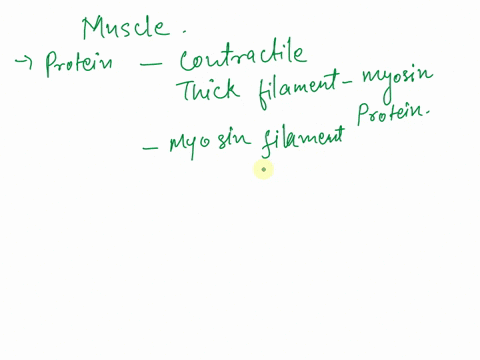 Muscle.
→ Protein — Contractile
Thick filament - myosin
Protein.
— Myosin filament